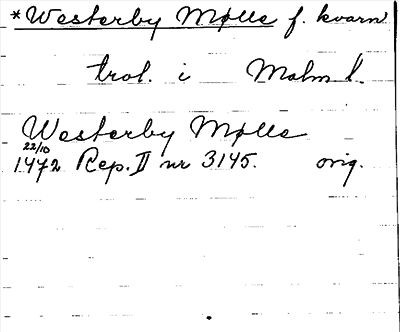 *Westerby Mølle f. kvarn
trol. i Malm l.
Westerby Mølle
22/10
1472 Rep. II nr 3145. orig.